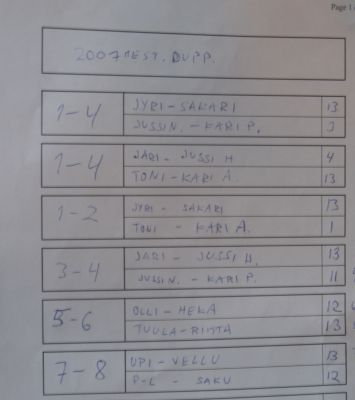 Page 1
2007 MEST. DUPP.
1-4
JYRI - SAKARI 13
JUSSI N. - KARI P. 3
1-4
JARI - JUSSI H 4
TONI - KARI A. 13
1-2
JYRI - SAKARI 13
TONI - KARI A. 1
3-4
JARI - JUSSI H. 13
JUSSI N. - KARI P. 11
5-6
OLLI - HEKA 12
TUULA - RIITTA 13
7-8
UPI - VELLU 13
P-L - SAKU 12